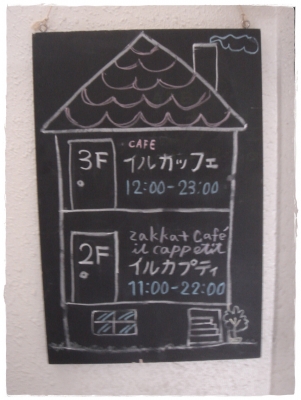 CAFE
3F
イルカッフェ
12:00-23:00
zakka+Café
il cappetit
2F
イルカプティ
11:00-22:00